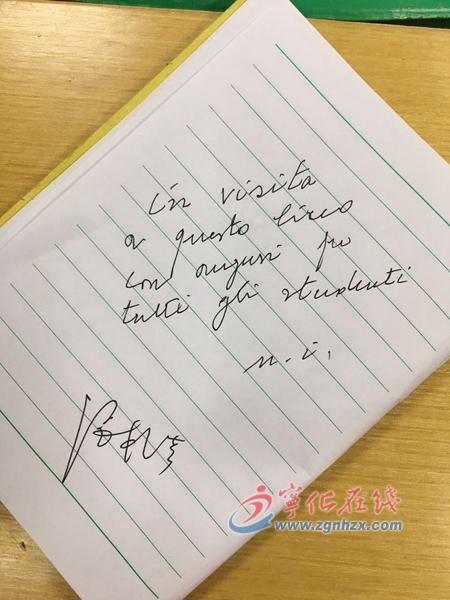 in visita
a questo liceo
con auguri per
tutti gli studenti
m. i.
宁化在线
www.zgnhzx.com